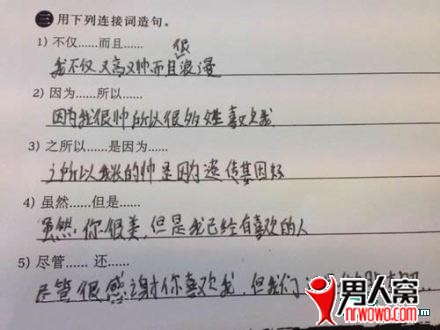 三 用下列连接词造句。
1) 不仅......而且......
我不仅又高又帅而且很浪漫
2) 因为......所以......
因为我很帅所以很多姓喜欢我
3) 之所以......是因为......
之所以我长的帅是因为遗传基因好
4) 虽然......但是......
虽然你很美,但是我已经有喜欢的人
5) 尽管...... 还......
尽管很感谢你喜欢我,但我们
男人窝
nrwowo.com